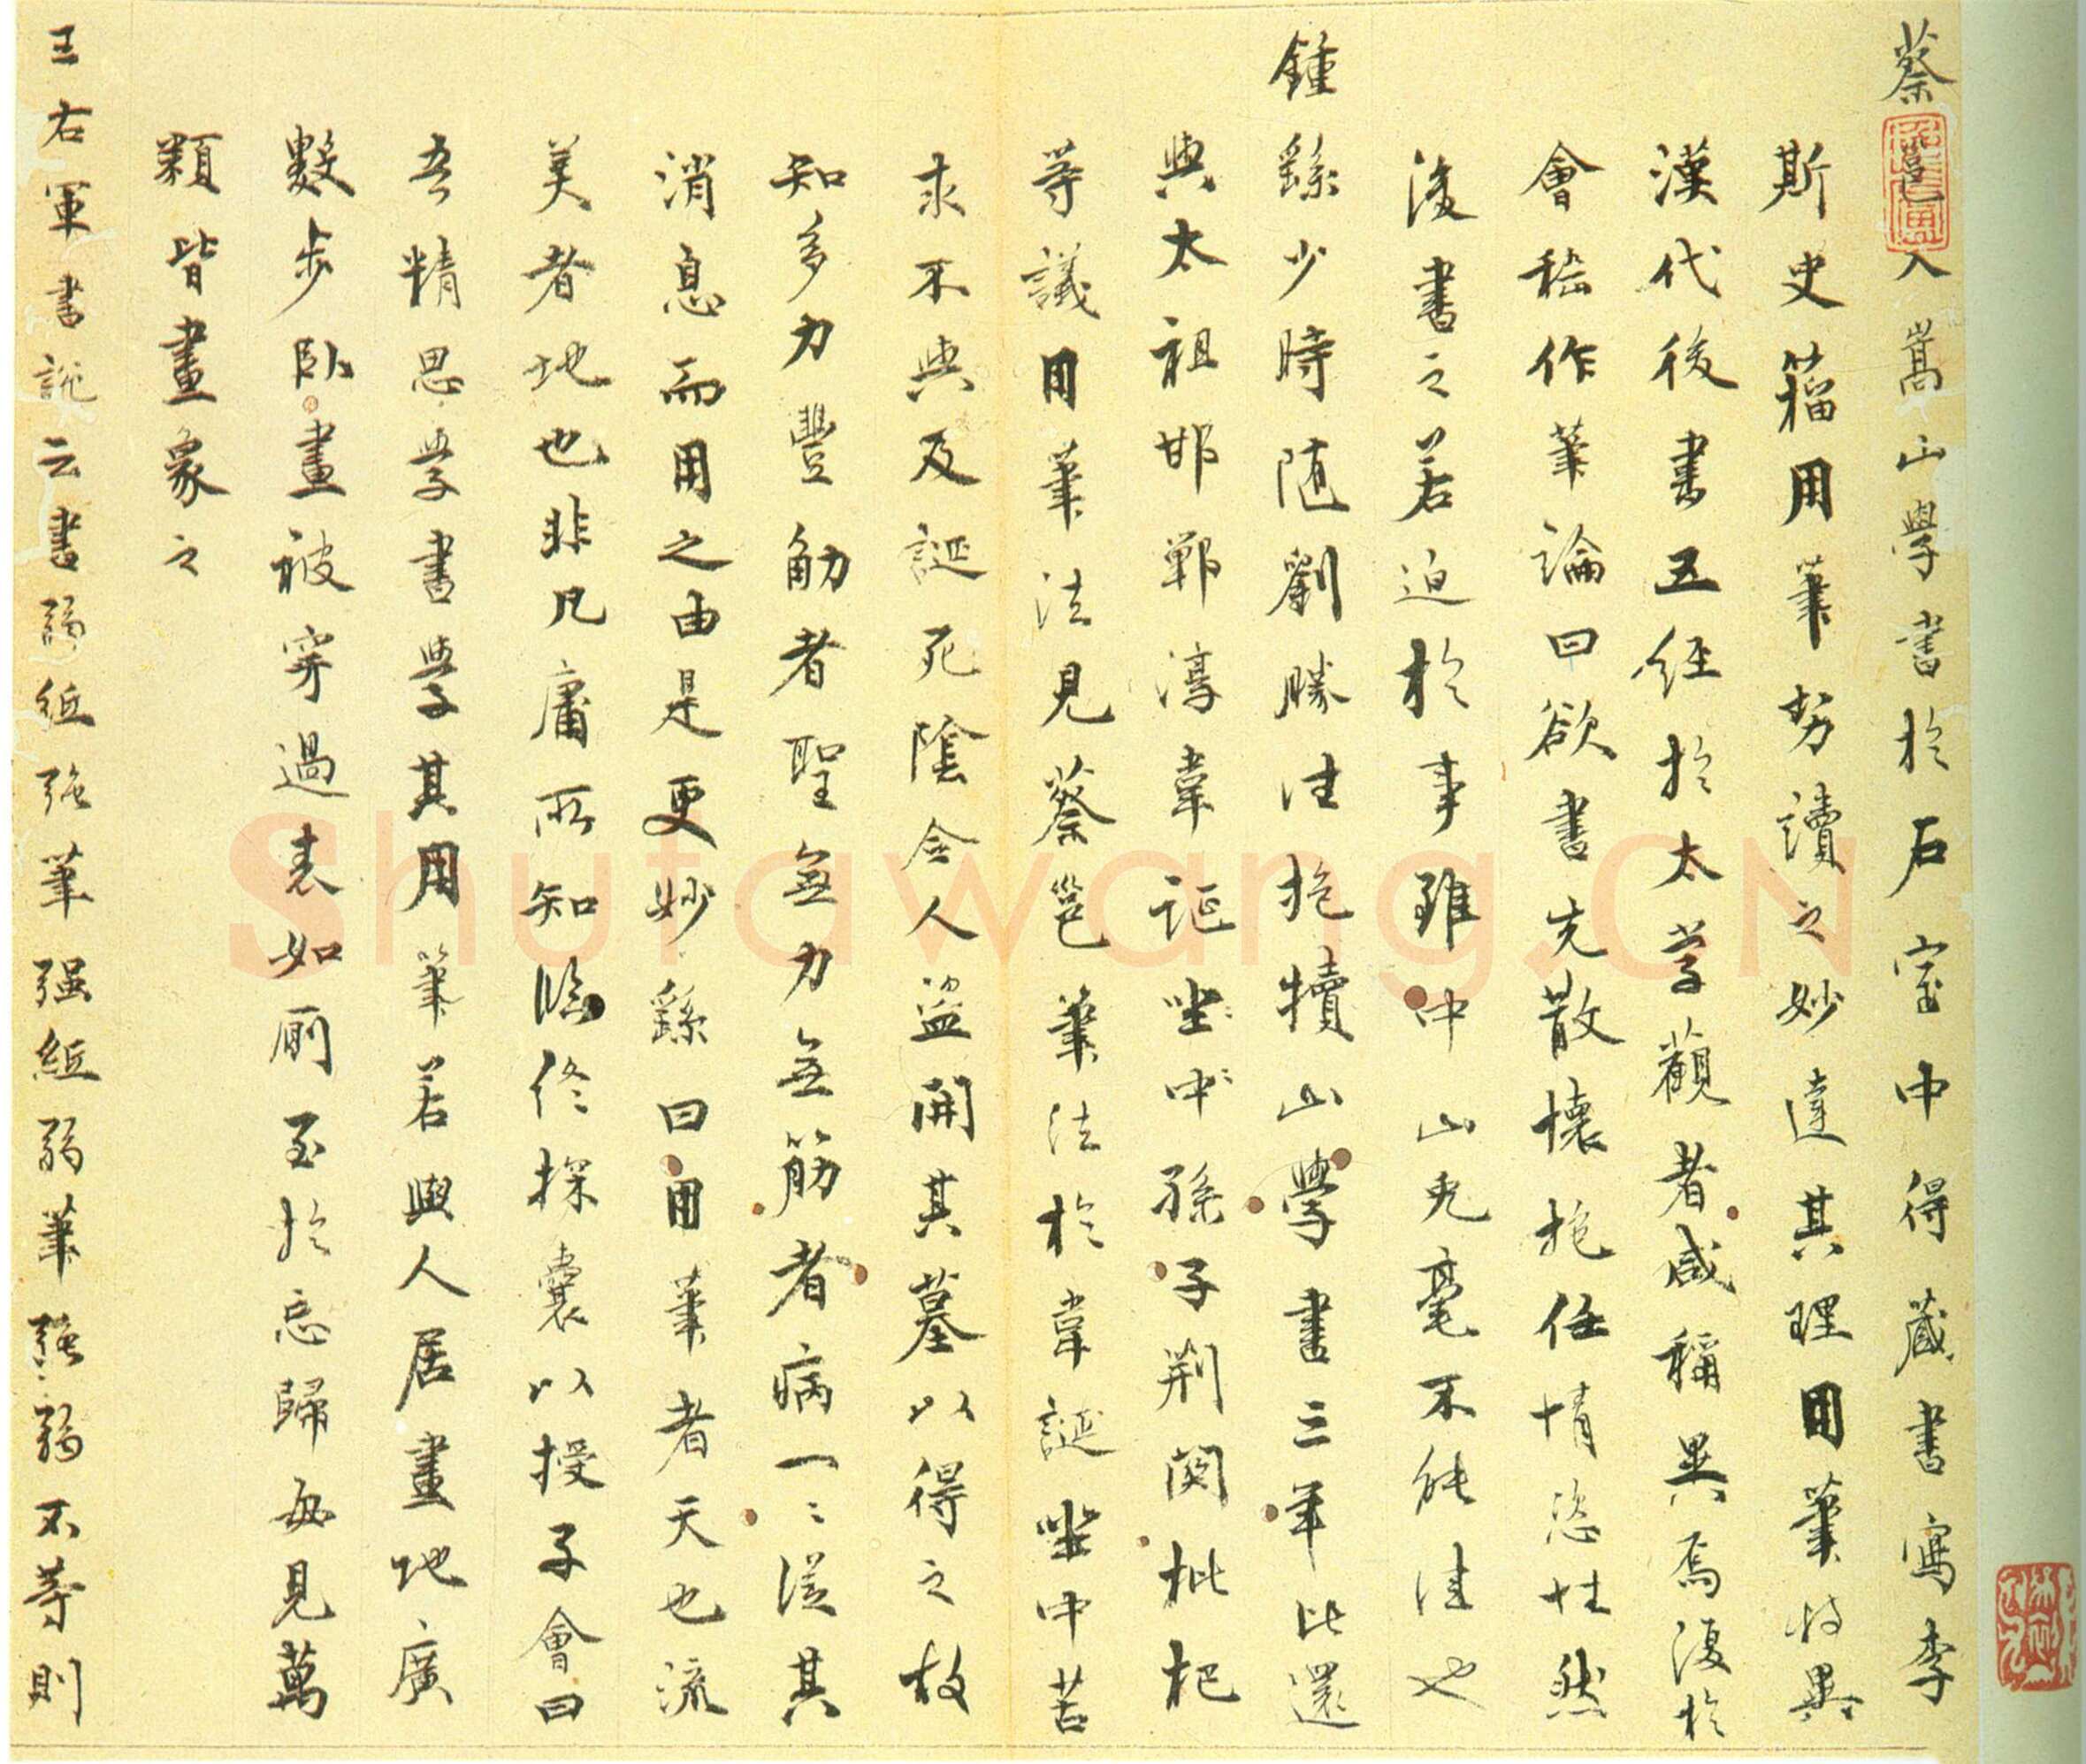 蔡邕入嵩山學書於石室中得藏書寫李
斯史籀用筆勢讀之妙達其理用筆特異
漢代後書五經於太學觀者咸稱異焉復於
會稽作筆論曰欲書先散懷抱任情恣性然
後書之若迫於事雖中山兔毫不能佳也
鍾繇少時隨劉勝往抱犢山學書三年比還
與太祖邯鄲淳韋誕坐中孫子荊關枇杷
等議用筆法見蔡邕筆法於韋誕坐中苦
求不與及誕死陰令人盜開其墓以得之故
知多力豐觔者聖無力無筋者病一〻從其
消息而用之由是更妙繇曰用筆者天也流
美者地也非凡庸所知臨終探囊以授子會曰
吾精思學書學其用筆若與人居畫地廣
數步臥畫被穿過表如廁至於忘歸每見萬
類皆畫象之
王右軍書說云書弱紙強筆强紙弱筆強弱不等則
Shufawang.CN